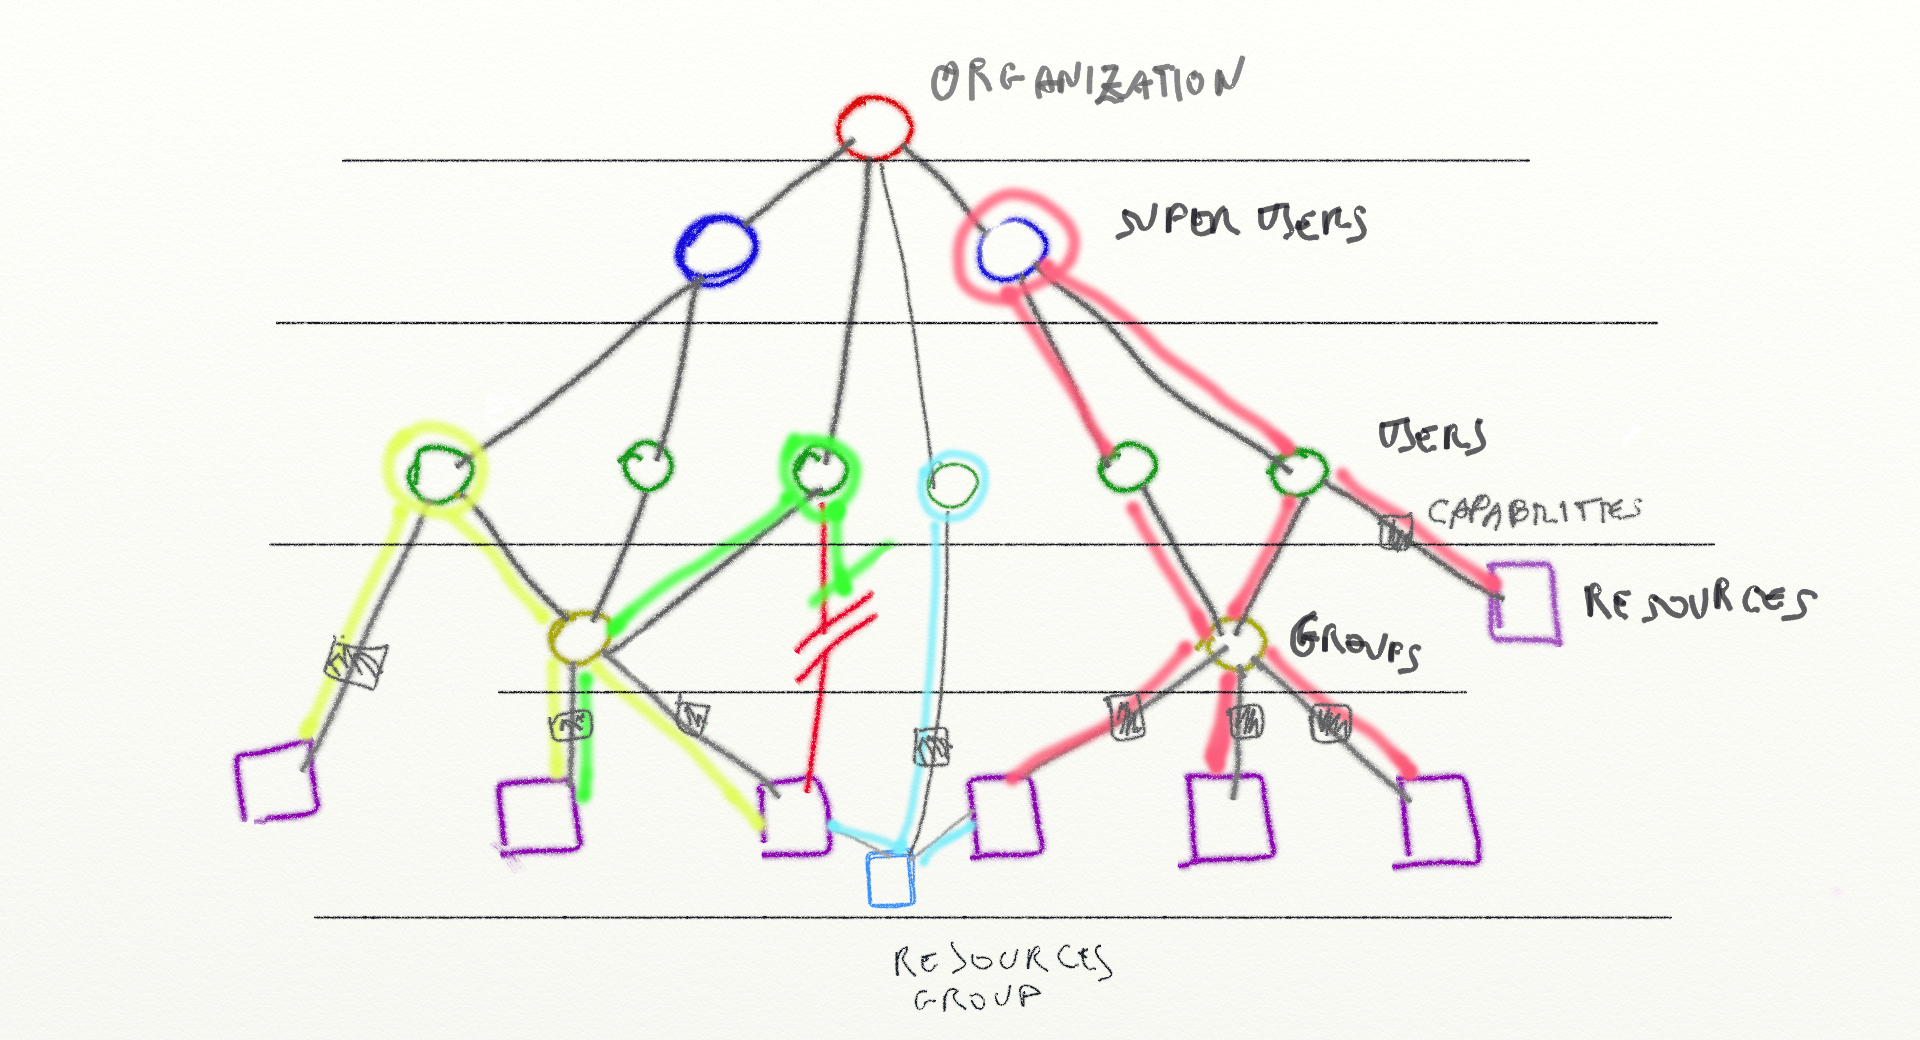 ORGANIZATION
SUPER USERS
USERS
CAPABILITIES
RESOURCES
GROUPS
RESOURCES
GROUP